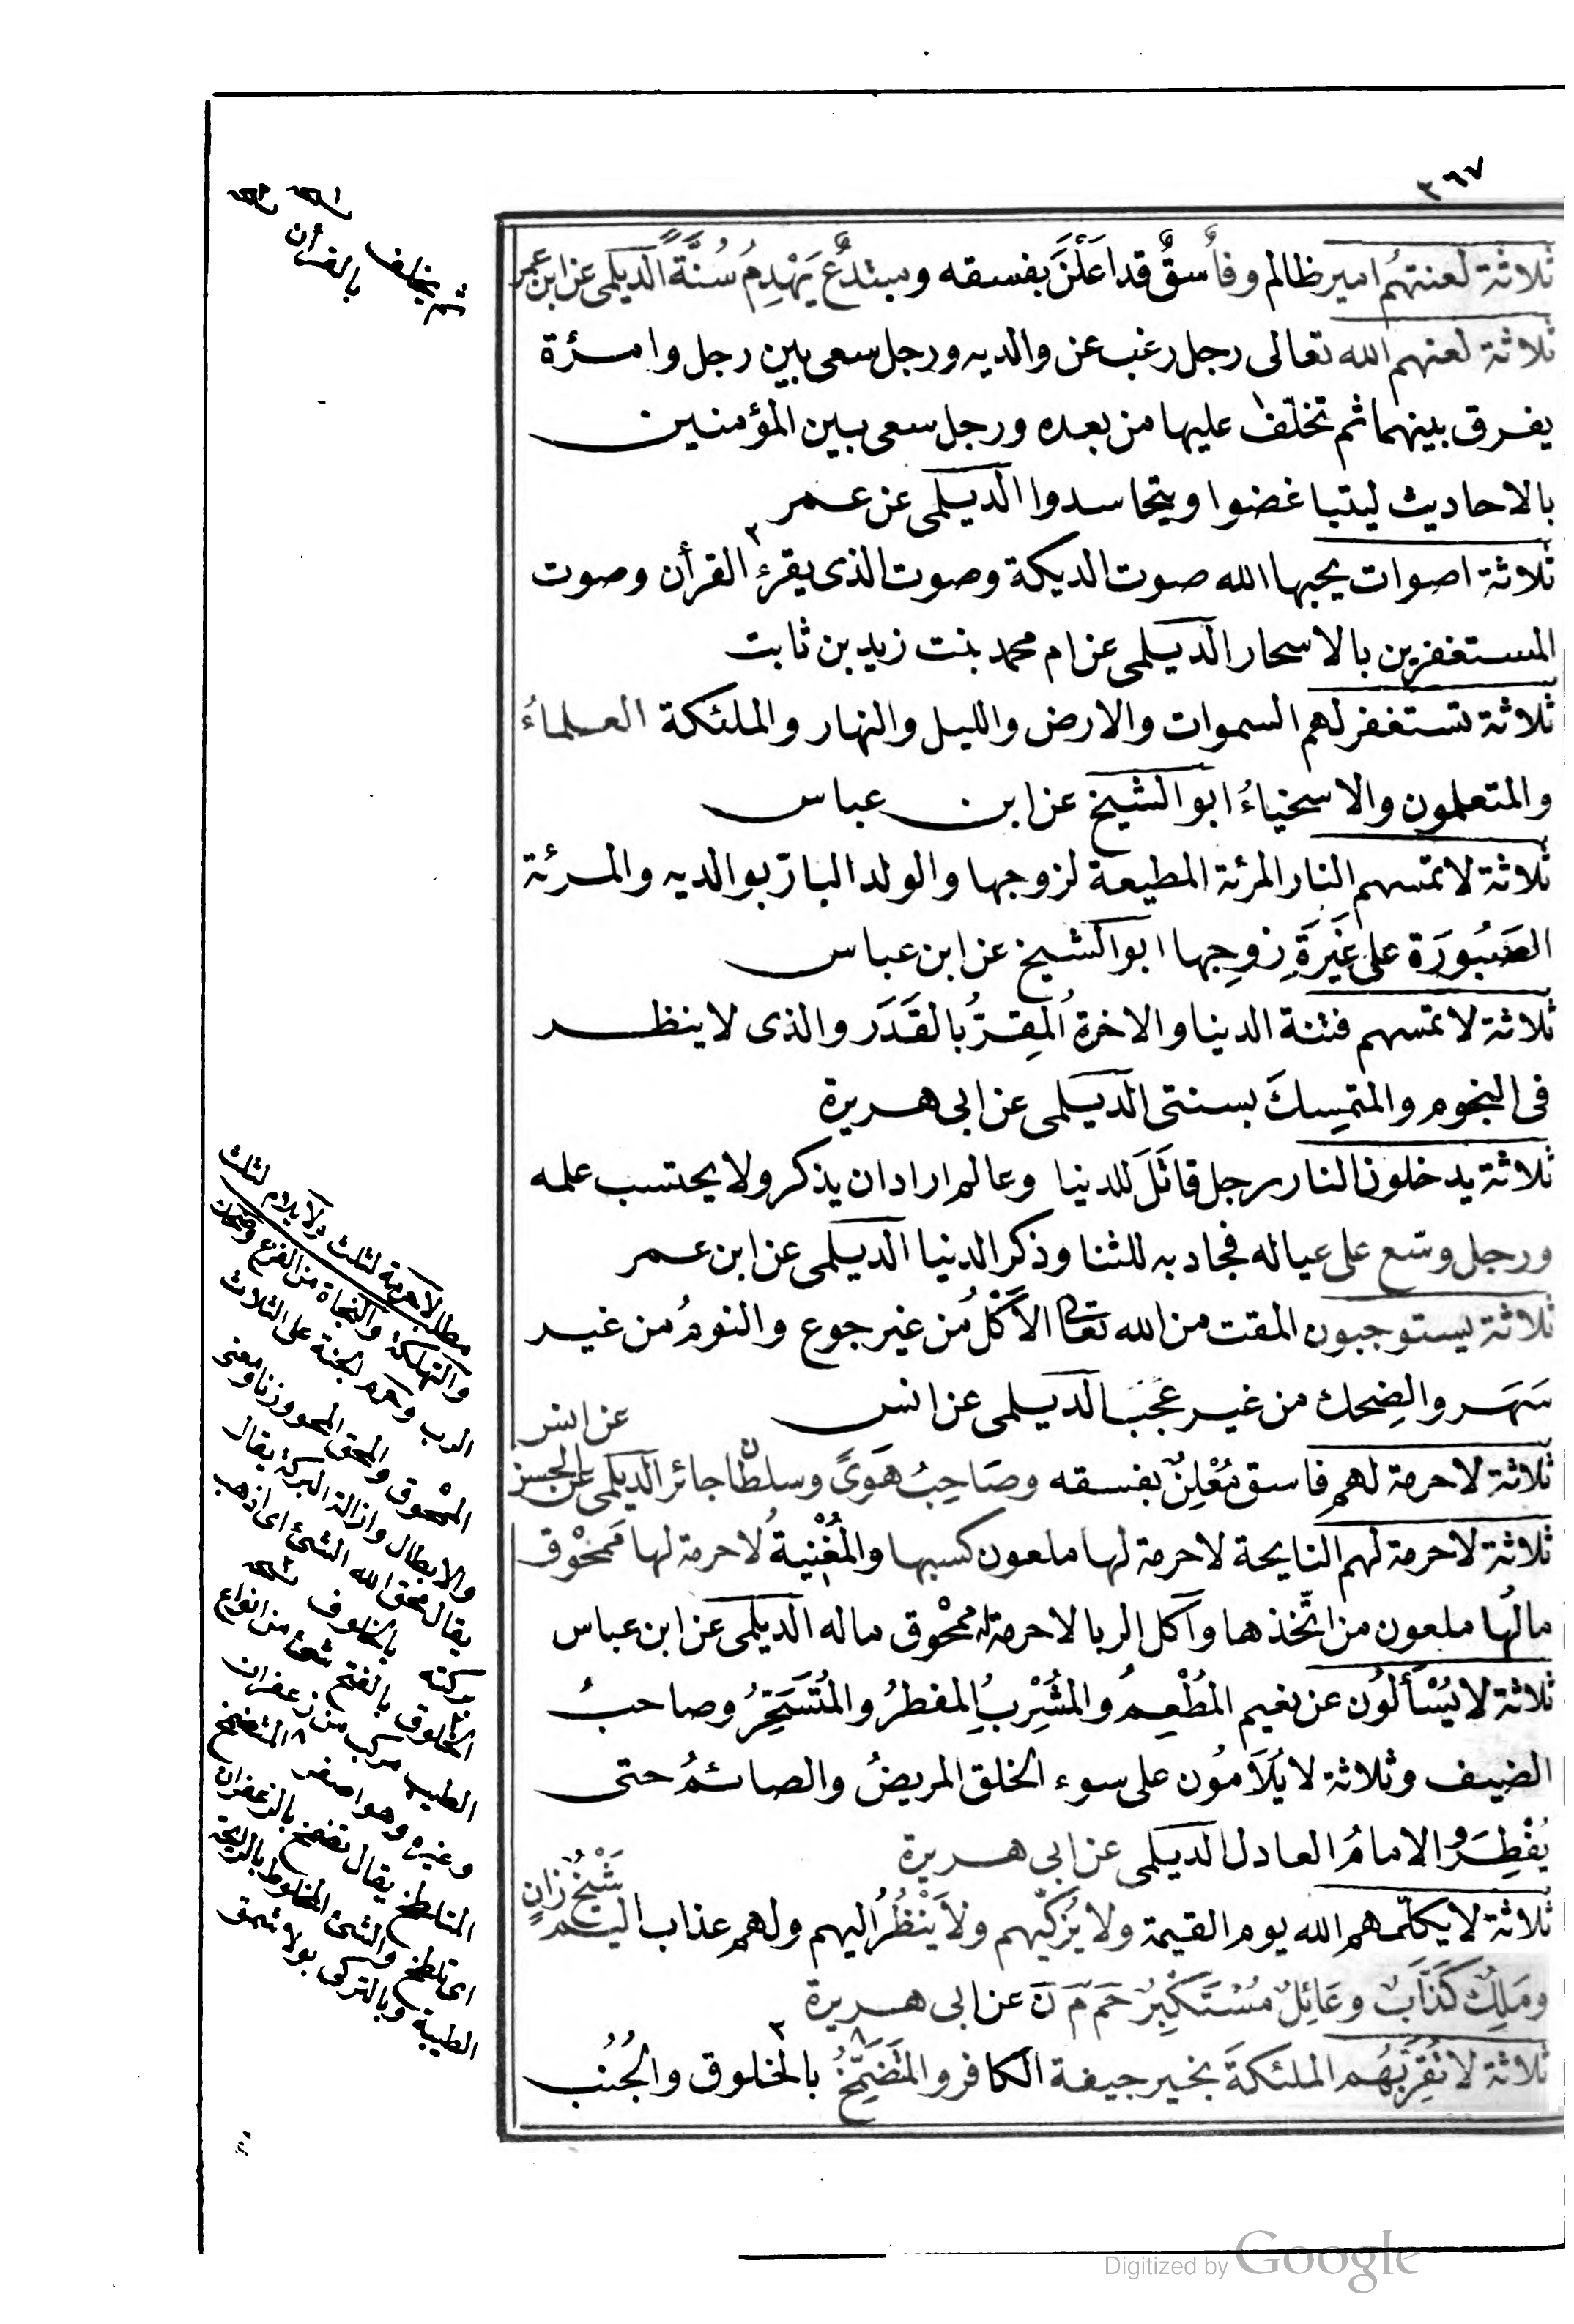 ٣٦٧
ثلاثة لعنتهم امير ظالم وفاسقٌ قد اَعْلَنَ بفسقه ومبتدعٌ يَهْدِمُ سُنَّةً الديلمى عن ابن عمر
ثلاثة لعنهم الله تعالى رجل رغب عن والديه ورجل سعى بين رجل وامرئة
يفرق بينهما ثم تخلّف عليها من بعده ورجل سعى بين المؤمنين
بالاحاديث ليتباغضوا ويتحاسدوا الديلمى عن عمر
ثلاثة اصوات يحبها الله صوت الديكة وصوت الذى يقرء القرأن وصوت
المستغفرين بالاسحار الديلمى عن ام محمد بنت زيد بن ثابت
ثلاثة تستغفر لهم السموات والارض والليل والنهار والملئكة العلماءُ
والمتعلمون والاسخياءُ ابو الشيخ عن ابن عباس
ثلاثة لا تمسهم النار المرئة المطيعة لزوجها والولد البارّ بوالديه والمرئة
الصَبُورَة على غَيرَةِ زوجِها ابو الشيخ عن ابن عباس
ثلاثة لا تمسهم فتنة الدينا والاخرة المُقِرُّ بالقَدَر والذى لا ينظر
فى النجوم والمتمسِك بسنتى الديلمى عن ابى هريرة
ثلاثة يدخلون النار رجل قاتَلَ للدنيا وعالم اراد ان يذكر ولا يحتسب علمه
ورجل وسّع على عياله فجاد به للثنا وذكر الدنيا الديلمى عن ابن عمر
ثلاثة يستوجبون المقت من الله تعالى الأكْل من غير جوع والنومُ من غير
سَهَر والضِحك من غير عَجَب الديلمى عن انس
ثلاثة لا حرمة لهم فاسق مُعْلِنٌ بفسقه وصَاحِبُ هَوىً وسلطان جائر الديلمى عن الحسن
عن انس
ثلاثة لا حرمة لهم النايحة لا حرمة لها ملعون كسبها والمُغْنِيةُ لا حرمة لها مَمحْوق
مالُها ملعون من اتّخذها وآكل الربا لا حرمة له ممحْوق ماله الديلمى عن ابن عباس
ثلاثة لا يُسْأَلوُن عن نعيم المُطْعِمُ والمشْرِبُ المفطرُ والمُتَسَحِّرُ وصاحبُ
الضيف وثلاثة لا يُلَامُون على سوء الخلق المريضُ والصائمُ حتى
يُفْطِرَ والامامُ العادل الديلمى عن ابى هريرة
ثلاثة لا يكلّمهم الله يوم القيمة ولا يُزكّيهم ولاَ يَنْظُرُ اليهم ولهم عذاب اليم شَيْخٌ زَانٍ
ومَلِكٌ كَذَّابٌ وعَائِلٌ مُسْتَكْبِرٌ حَمَ مَ نَ عن ابى هريرة
ثلاثة لا تَقْرَبُهُم الملئكةُ بخير جيفة الكافر والمُتَضَمِّخُ بالخلوق والجُنُب
ثم يخلف
بالقرأن
مطلب لا حرمة لثلث ولا يلام لثلث
والتهلكة والنجاة من الفزع وضحك
الرب وحرم الجنة على الثلاث
الممحْوق والمحق المحو وزنا ومعنى
والابطال وازالة البركة يقال
يقال محق الله الشئ اى اذهب
بركته بالخلوف
الخلوق بالفتح شئ من انواع
الطيب مركب من زعفران
وغيره وهو اصفر المتضمخ
المتلطخ يقال تضمخ بالزعفران
اى تلطخ والشئ المخلوط بالرايحة
الطيبة وبالتركى بولاشمق
Digitized by Google